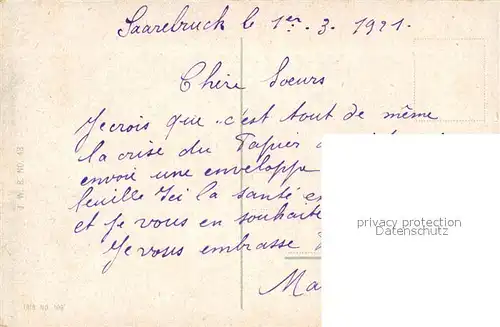 Saarebruck le 1er. 3. 1921.
Chère Soeurs
Je crois que c'est tout de même
la crise du Papier
envoie une enveloppe
feuille Ici la santé
et Je vous en souhaite
Je vous embrasse
Ma
privacy protection
Datenschutz